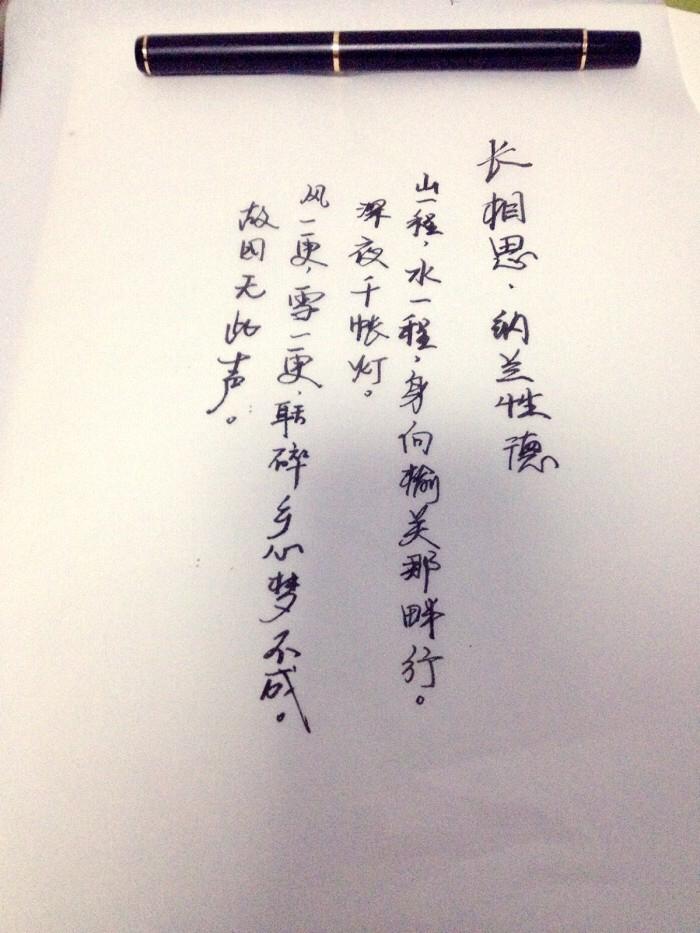 长相思·纳兰性德
山一程,水一程,身向榆关那畔行。
深夜千帐灯。
风一更,雪一更,聒碎乡心梦不成。
故园无此声。